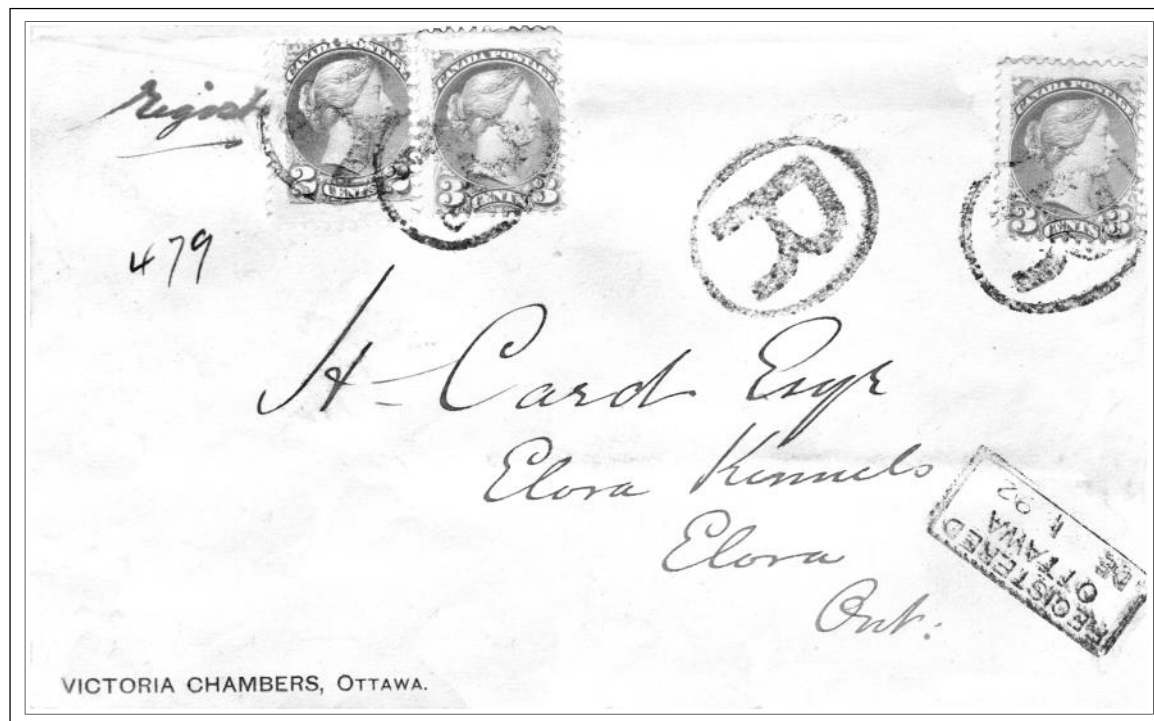 CANADA POSTAGE
2 CENTS 2
CANADA POSTAGE
3 CENTS 3
CANADA POSTAGE
3 CENTS 3
Regist
479
R
R
A. Card Esqr
Elora Kennels
Elora
Ont.
REGISTERED
OTTAWA
92
VICTORIA CHAMBERS, OTTAWA.